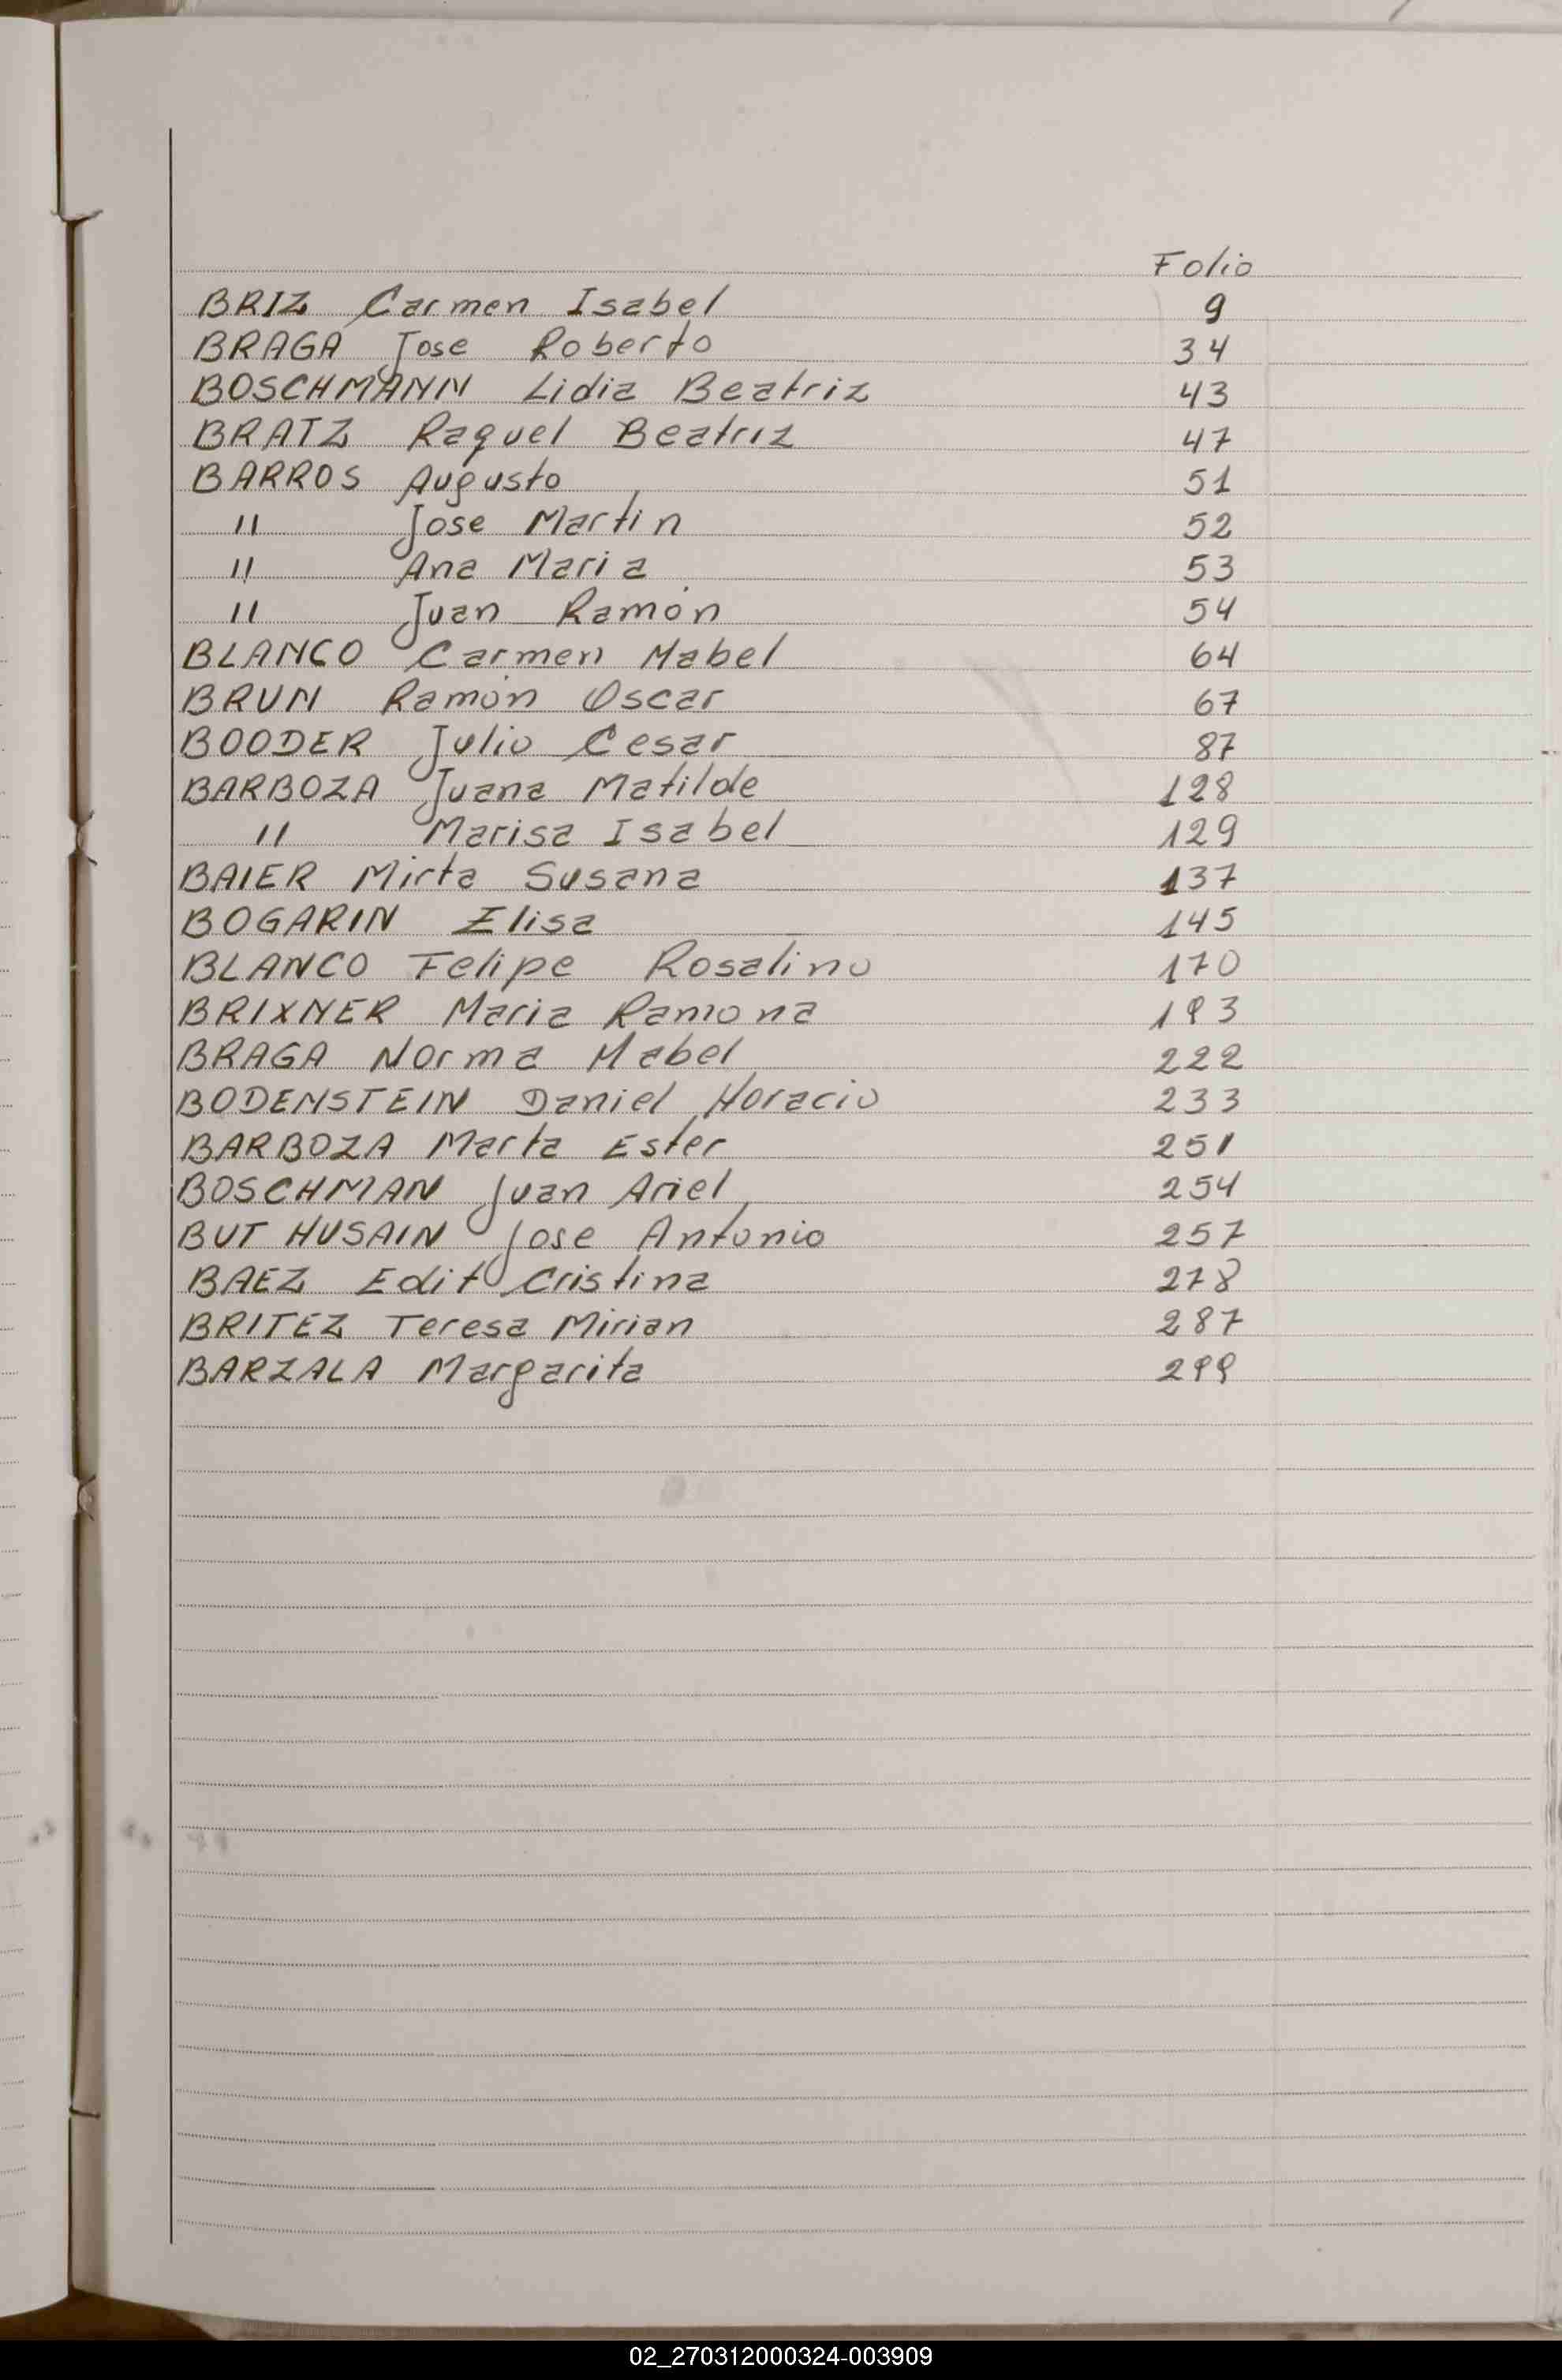 Folio
BRIZ Carmen Isabel 9
BRAGA Jose Roberto 34
BOSCHMANN Lidia Beatriz 43
BRATZ Raquel Beatriz 47
BARROS Augusto 51
" Jose Martin 52
" Ana Maria 53
" Juan Ramón 54
BLANCO Carmen Mabel 64
BRUN Ramón Oscar 67
BOODER Julio Cesar 87
BARBOZA Juana Matilde 128
" Marisa Isabel 129
BAIER Mirta Susana 137
BOGARIN Elisa 145
BLANCO Felipe Rosalino 170
BRIXNER Maria Ramona 193
BRAGA Norma Mabel 222
BODENSTEIN Daniel Horacio 233
BARBOZA Marta Ester 251
BOSCHMAN Juan Ariel 254
BUT HUSAIN Jose Antonio 257
BAEZ Edit Cristina 278
BRITEZ Teresa Mirian 287
BARZALA Margarita 299
02_270312000324-003909